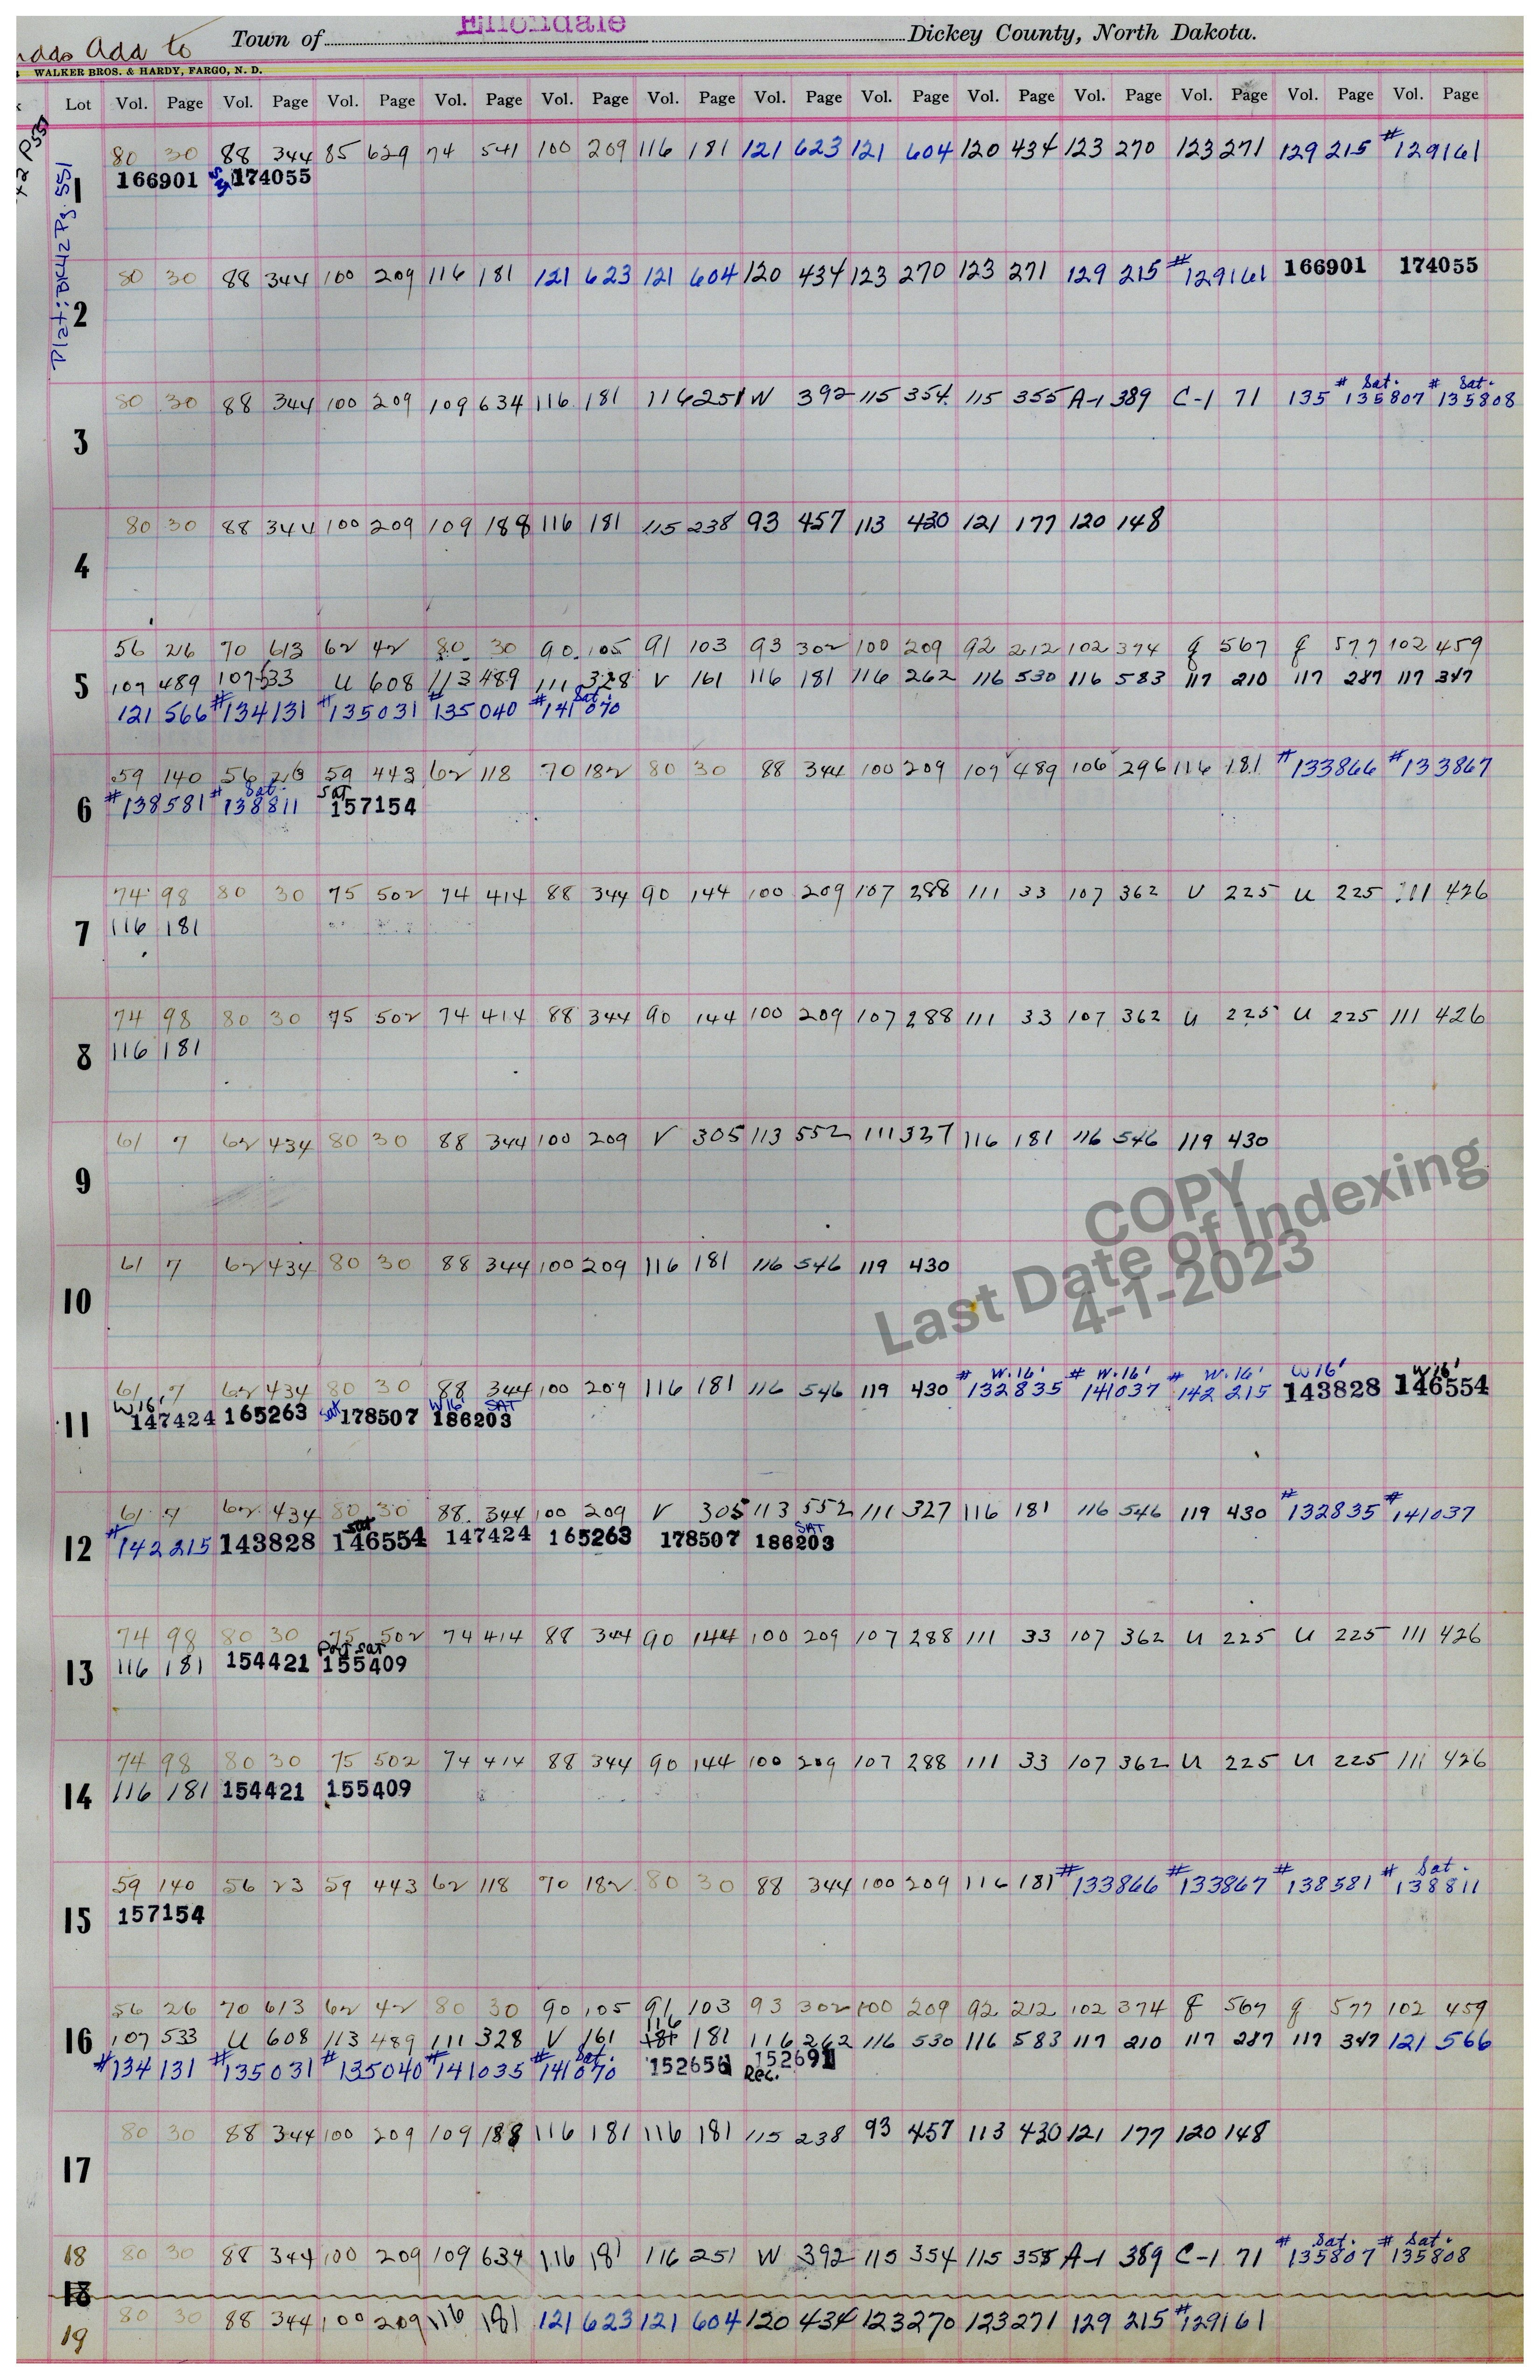 Add to Town of Ellendale Dickey County, North Dakota.
WALKER BROS. & HARDY, FARGO, N. D.
Lot Vol. Page Vol. Page Vol. Page Vol. Page Vol. Page Vol. Page Vol. Page Vol. Page Vol. Page Vol. Page Vol. Page Vol. Page Vol. Page
Plat: BK42 Pg. 551
1 80 30 88 344 85 629 74 541 100 209 116 181 121 623 121 604 120 434 123 270 123 271 129 215 #129161
166901 174055
2 80 30 88 344 100 209 116 181 121 623 121 604 120 434 123 270 123 271 129 215 #129161 166901 174055
# Sat. # Sat.
3 80 30 88 344 100 209 109 634 116 181 116 251 W 392 115 354 115 355 A-1 389 C-1 71 135 135807 135808
4 80 30 88 344 100 209 109 188 116 181 115 238 93 457 113 430 121 177 120 148
56 26 70 613 62 42 80 30 90 105 91 103 93 302 100 209 92 212 102 374 g 567 g 577 102 459
5 107 489 107 533 U 608 113 489 111 328 V 161 116 181 116 262 116 530 116 583 117 210 117 287 117 347
121 566 #134131 #135031 #135040 #141070 Sat.
59 140 56 23 59 443 62 118 70 182 80 30 88 344 100 209 107 489 106 296 116 181 #133866 #133867
6 #138581 #138811 Sat. Sat 157154
74 98 80 30 75 502 74 414 88 344 90 144 100 209 107 288 111 33 107 362 U 225 U 225 111 426
7 116 181
74 98 80 30 75 502 74 414 88 344 90 144 100 209 107 288 111 33 107 362 U 225 U 225 111 426
8 116 181
9 61 7 62 434 80 30 88 344 100 209 V 305 113 552 111 327 116 181 116 546 119 430
COPY
Last Date of Indexing
4-1-2023
10 61 7 62 434 80 30 88 344 100 209 116 181 116 546 119 430
# W.16' # W.16' # W.16' W16' W16'
61 7 62 434 80 30 88 344 100 209 116 181 116 546 119 430 132835 141037 142215 143828 146554
11 W16' 147424 165263 Sat 178507 W16' SAT 186203
61 7 62 434 80 30 88 344 100 209 V 305 113 552 111 327 116 181 116 546 119 430 #132835 #141037
12 #142215 143828 Sat 146554 147424 165263 178507 SAT 186203
74 98 80 30 75 502 74 414 88 344 90 144 100 209 107 288 111 33 107 362 U 225 U 225 111 426
13 116 181 154421 Part Sat 155409
74 98 80 30 75 502 74 414 88 344 90 144 100 209 107 288 111 33 107 362 U 225 U 225 111 426
14 116 181 154421 155409
59 140 56 23 59 443 62 118 70 182 80 30 88 344 100 209 116 181 #133866 #133867 #138581 # Sat. 138811
15 157154
56 26 70 613 62 42 80 30 90 105 91 103 93 302 100 209 92 212 102 374 g 567 g 577 102 459
16 107 533 U 608 113 489 111 328 V 161 116 181 181 116 262 116 530 116 583 117 210 117 287 117 347 121 566
#134131 #135031 #135040 #141035 #141070 Sat. 152656 152691 Rec.
17 80 30 88 344 100 209 109 188 116 181 116 181 115 238 93 457 113 430 121 177 120 148
# Sat. # Sat.
18 80 30 88 344 100 209 109 634 116 181 116 251 W 392 115 354 115 355 A-1 389 C-1 71 135807 135808
18
19 80 30 88 344 100 209 116 181 121 623 121 604 120 434 123 270 123 271 129 215 #129161